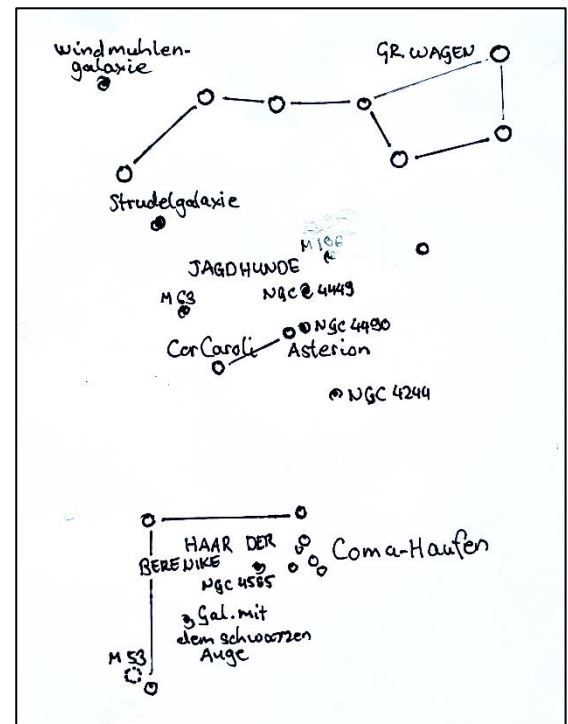 Windmuhlen-
galaxie
GR. WAGEN
Strudelgalaxie
M 106
JAGDHUNDE
M 63
NGC 4449
NGC 4490
Cor Caroli
Asterion
NGC 4244
HAAR DER
BERENIKE
Coma-Haufen
NGC 4565
Gal. mit
dem schwarzen
Auge
M 53